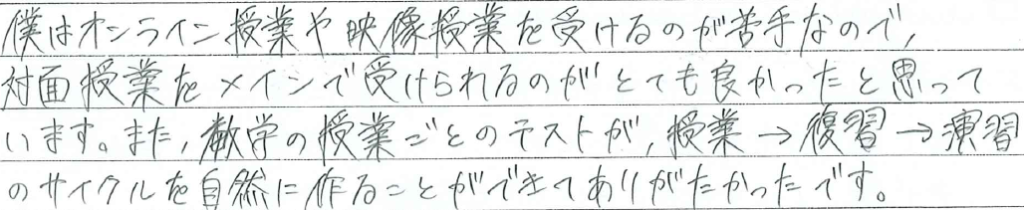 僕はオンライン授業や映像授業を受けるのが苦手なので,
対面授業をメインで受けられるのがとても良かったと思って
います。また,数学の授業ごとのテストが,授業→復習→演習
のサイクルを自然に作ることができてありがたかったです。